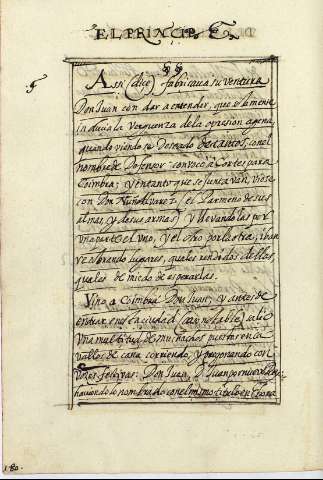 EL PRINCIPE
§§
Assi (dice) fabricaua su ventura
Don Juan con dar a entender, que
la verguenza de la opresion agena,
quando viendo su Deseado de tantos, con el
nombre de Defensor: convocò a Cortes para
Coimbra; y entanto que se juntavan, viose
con Don Nuño Alvarez, el Parmeno de sus
almas, y de sus armas; y llevandolas por
una parte el uno, y el otro por la otra, iban
cobrando lugares, quales rendidos dellos,
quales de miedo de esperarlas.
Vino a Coimbra Don Juan, y antes de
entrar en la ciudad (caso notable) salio
una multitud de muchachos puestos en ca
vallos de caña corriendo, y pregonando con
vozes festivas: Don Juan, D. Juan por
haviendo nombrado con el mismo titulo en
180.